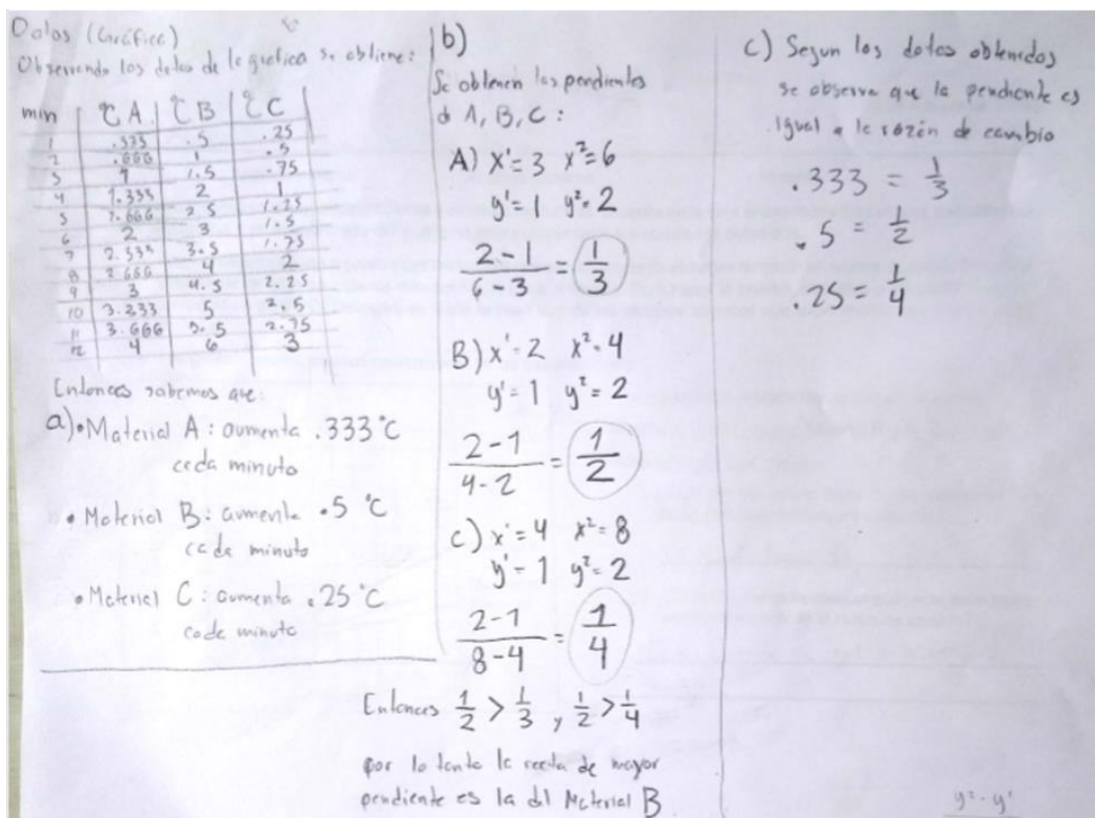 Datos (Gráfica)
Observando los datos de la grafica se obtiene:
min °C A °C B °C C
1 .333 .5 .25
2 .666 1 .5
3 1 1.5 .75
4 1.333 2 1
5 1.666 2.5 1.25
6 2 3 1.5
7 2.333 3.5 1.75
8 2.666 4 2
9 3 4.5 2.25
10 3.333 5 2.5
11 3.666 5.5 2.75
12 4 6 3
Entonces sabemos que:
a) • Material A: aumenta .333 °C
cada minuto
• Material B: aumenta .5 °C
cada minuto
• Material C: aumenta .25 °C
cada minuto
b)
Se obtienen las pendientes
d A, B, C:
A) x' = 3 x² = 6
y' = 1 y² = 2
2 - 1 / 6 - 3 = 1/3
B) x' = 2 x² = 4
y' = 1 y² = 2
2 - 1 / 4 - 2 = 1/2
C) x' = 4 x² = 8
y' = 1 y² = 2
2 - 1 / 8 - 4 = 1/4
Entonces 1/2 > 1/3 , 1/2 > 1/4
por lo tanto la recta de mayor
pendiente es la del Material B
c) Segun los datos obtenidos
se observa que la pendiente es
igual a la razón de cambio
.333 = 1/3
.5 = 1/2
.25 = 1/4
y² - y'